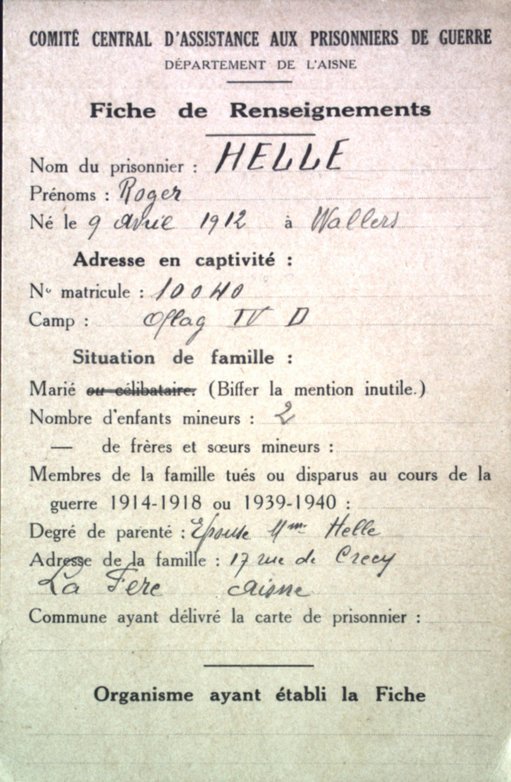 COMITÉ CENTRAL D'ASSISTANCE AUX PRISONNIERS DE GUERRE
DÉPARTEMENT DE L'AISNE
Fiche de Renseignements
Nom du prisonnier : HELLE
Prénoms : Roger
Né le 9 avril 1912 à Wallers
Adresse en captivité :
No matricule : 10040
Camp : Oflag IV D
Situation de famille :
Marié ou célibataire. (Biffer la mention inutile.)
Nombre d'enfants mineurs : 2
— de frères et sœurs mineurs :
Membres de la famille tués ou disparus au cours de la
guerre 1914-1918 ou 1939-1940 :
Degré de parenté : Epouse Mme Helle
Adresse de la famille : 17 rue de Crecy
La Fere Aisne
Commune ayant délivré la carte de prisonnier :
Organisme ayant établi la Fiche